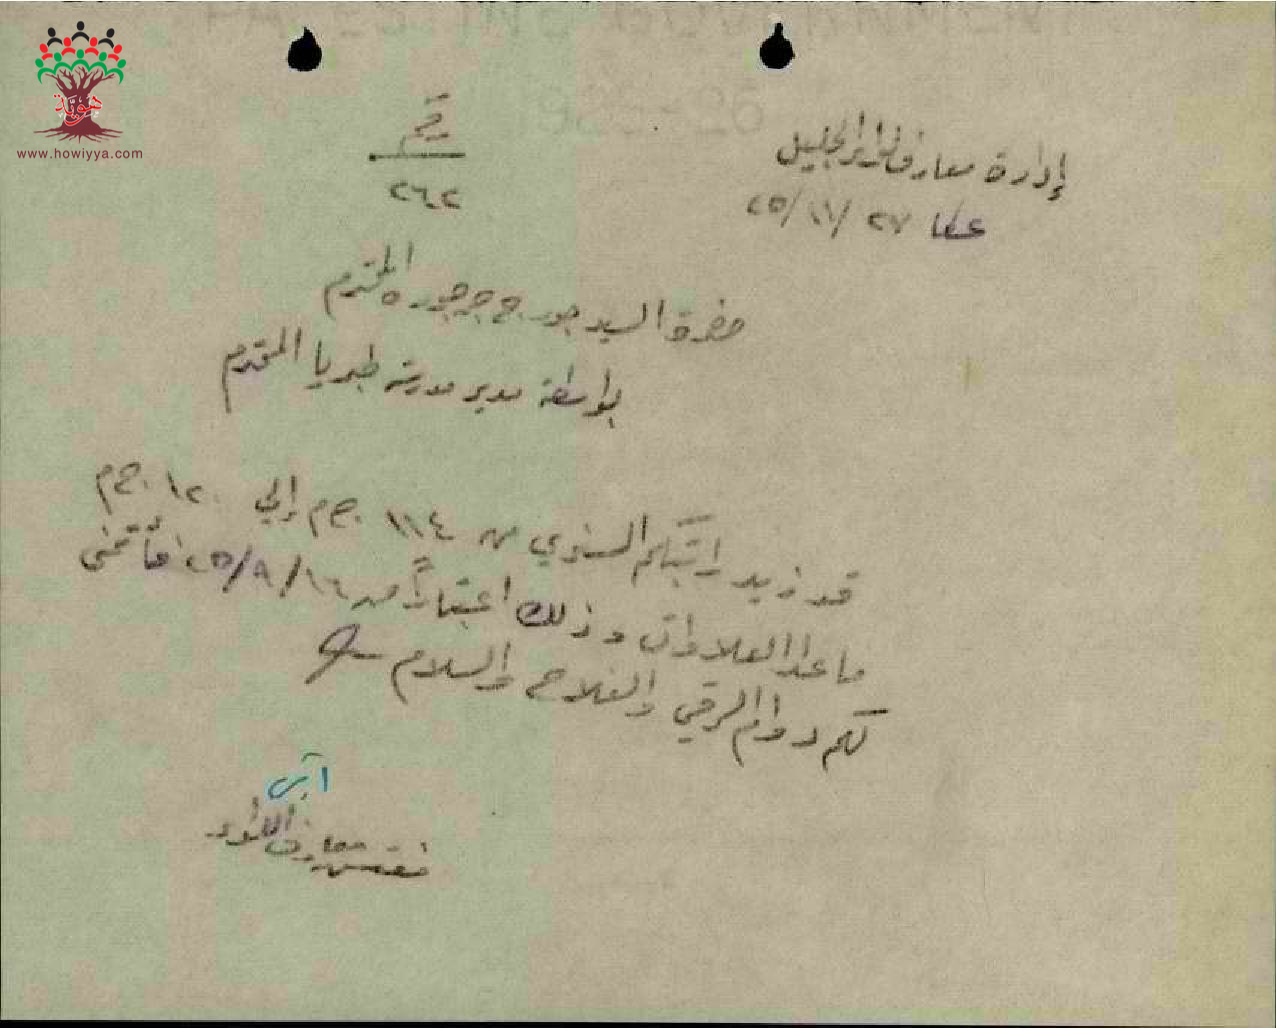 هوية
www.howiyya.com
إدارة معارف لواء الجليل
عكا ٢٧/١١/٢٥
رقم
٢٤٢
حضرة السيد جورج جرجوره المحترم
بواسطة مدير مدرسة طبريا المحترم
قد زيد راتبكم السنوي من ١١٤ ج.م إلى ١٢٠ ج.م
ما عدا العلاوات وذلك اعتباراً من ٢٥/٨/١٦ فأتمنى
لكم دوام الرقي والفلاح والسلام
مفتش معارف اللواء